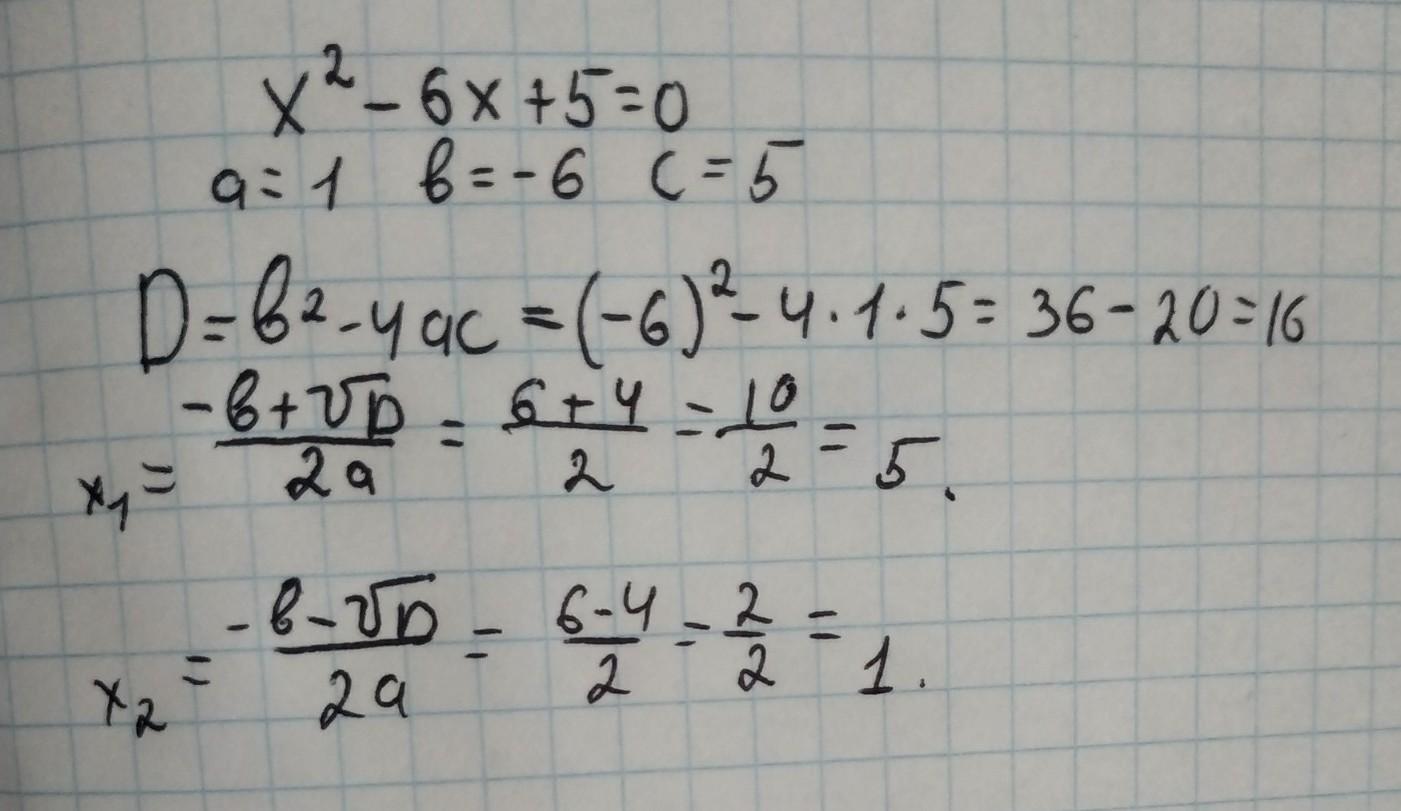 x² - 6x + 5 = 0
a = 1 в = -6 c = 5
D = в² - 4ac = (-6)² - 4 · 1 · 5 = 36 - 20 = 16
x₁ = (-в + √D)/(2a) = (6 + 4)/2 = 10/2 = 5.
x₂ = (-в - √D)/(2a) = (6 - 4)/2 = 2/2 = 1.